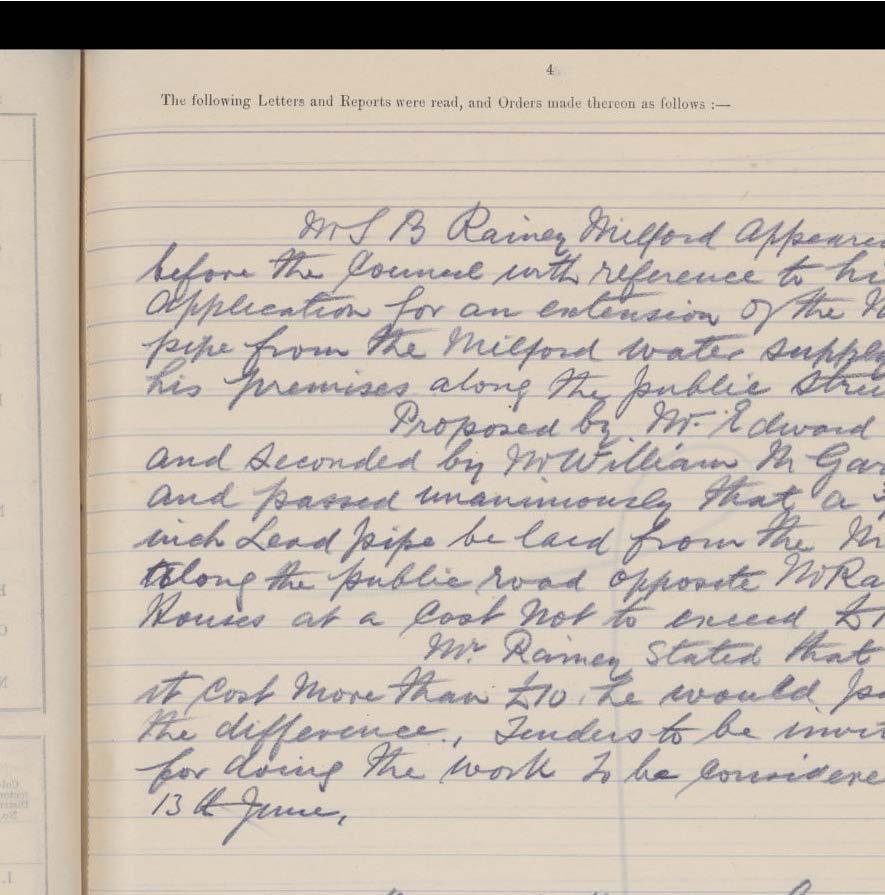 4
The following Letters and Reports were read, and Orders made thereon as follows :—
Mr S B Rainey Milford Appeare
before the Council with reference to hi
Application for an extension of the M
pipe from the Milford water supply
his premises along the public stre
Proposed by Mr. Edward
and Seconded by Mr William Mc Gar
and passed unanimously that a
inch Lead pipe be laid from the M
along the public road opposite Mr Ra
Houses at a Cost not to exceed £1
Mr. Rainey Stated that
it Cost more than £10. he would pa
the difference., Tenders to be invi
for doing the work to be Considere
13th June,